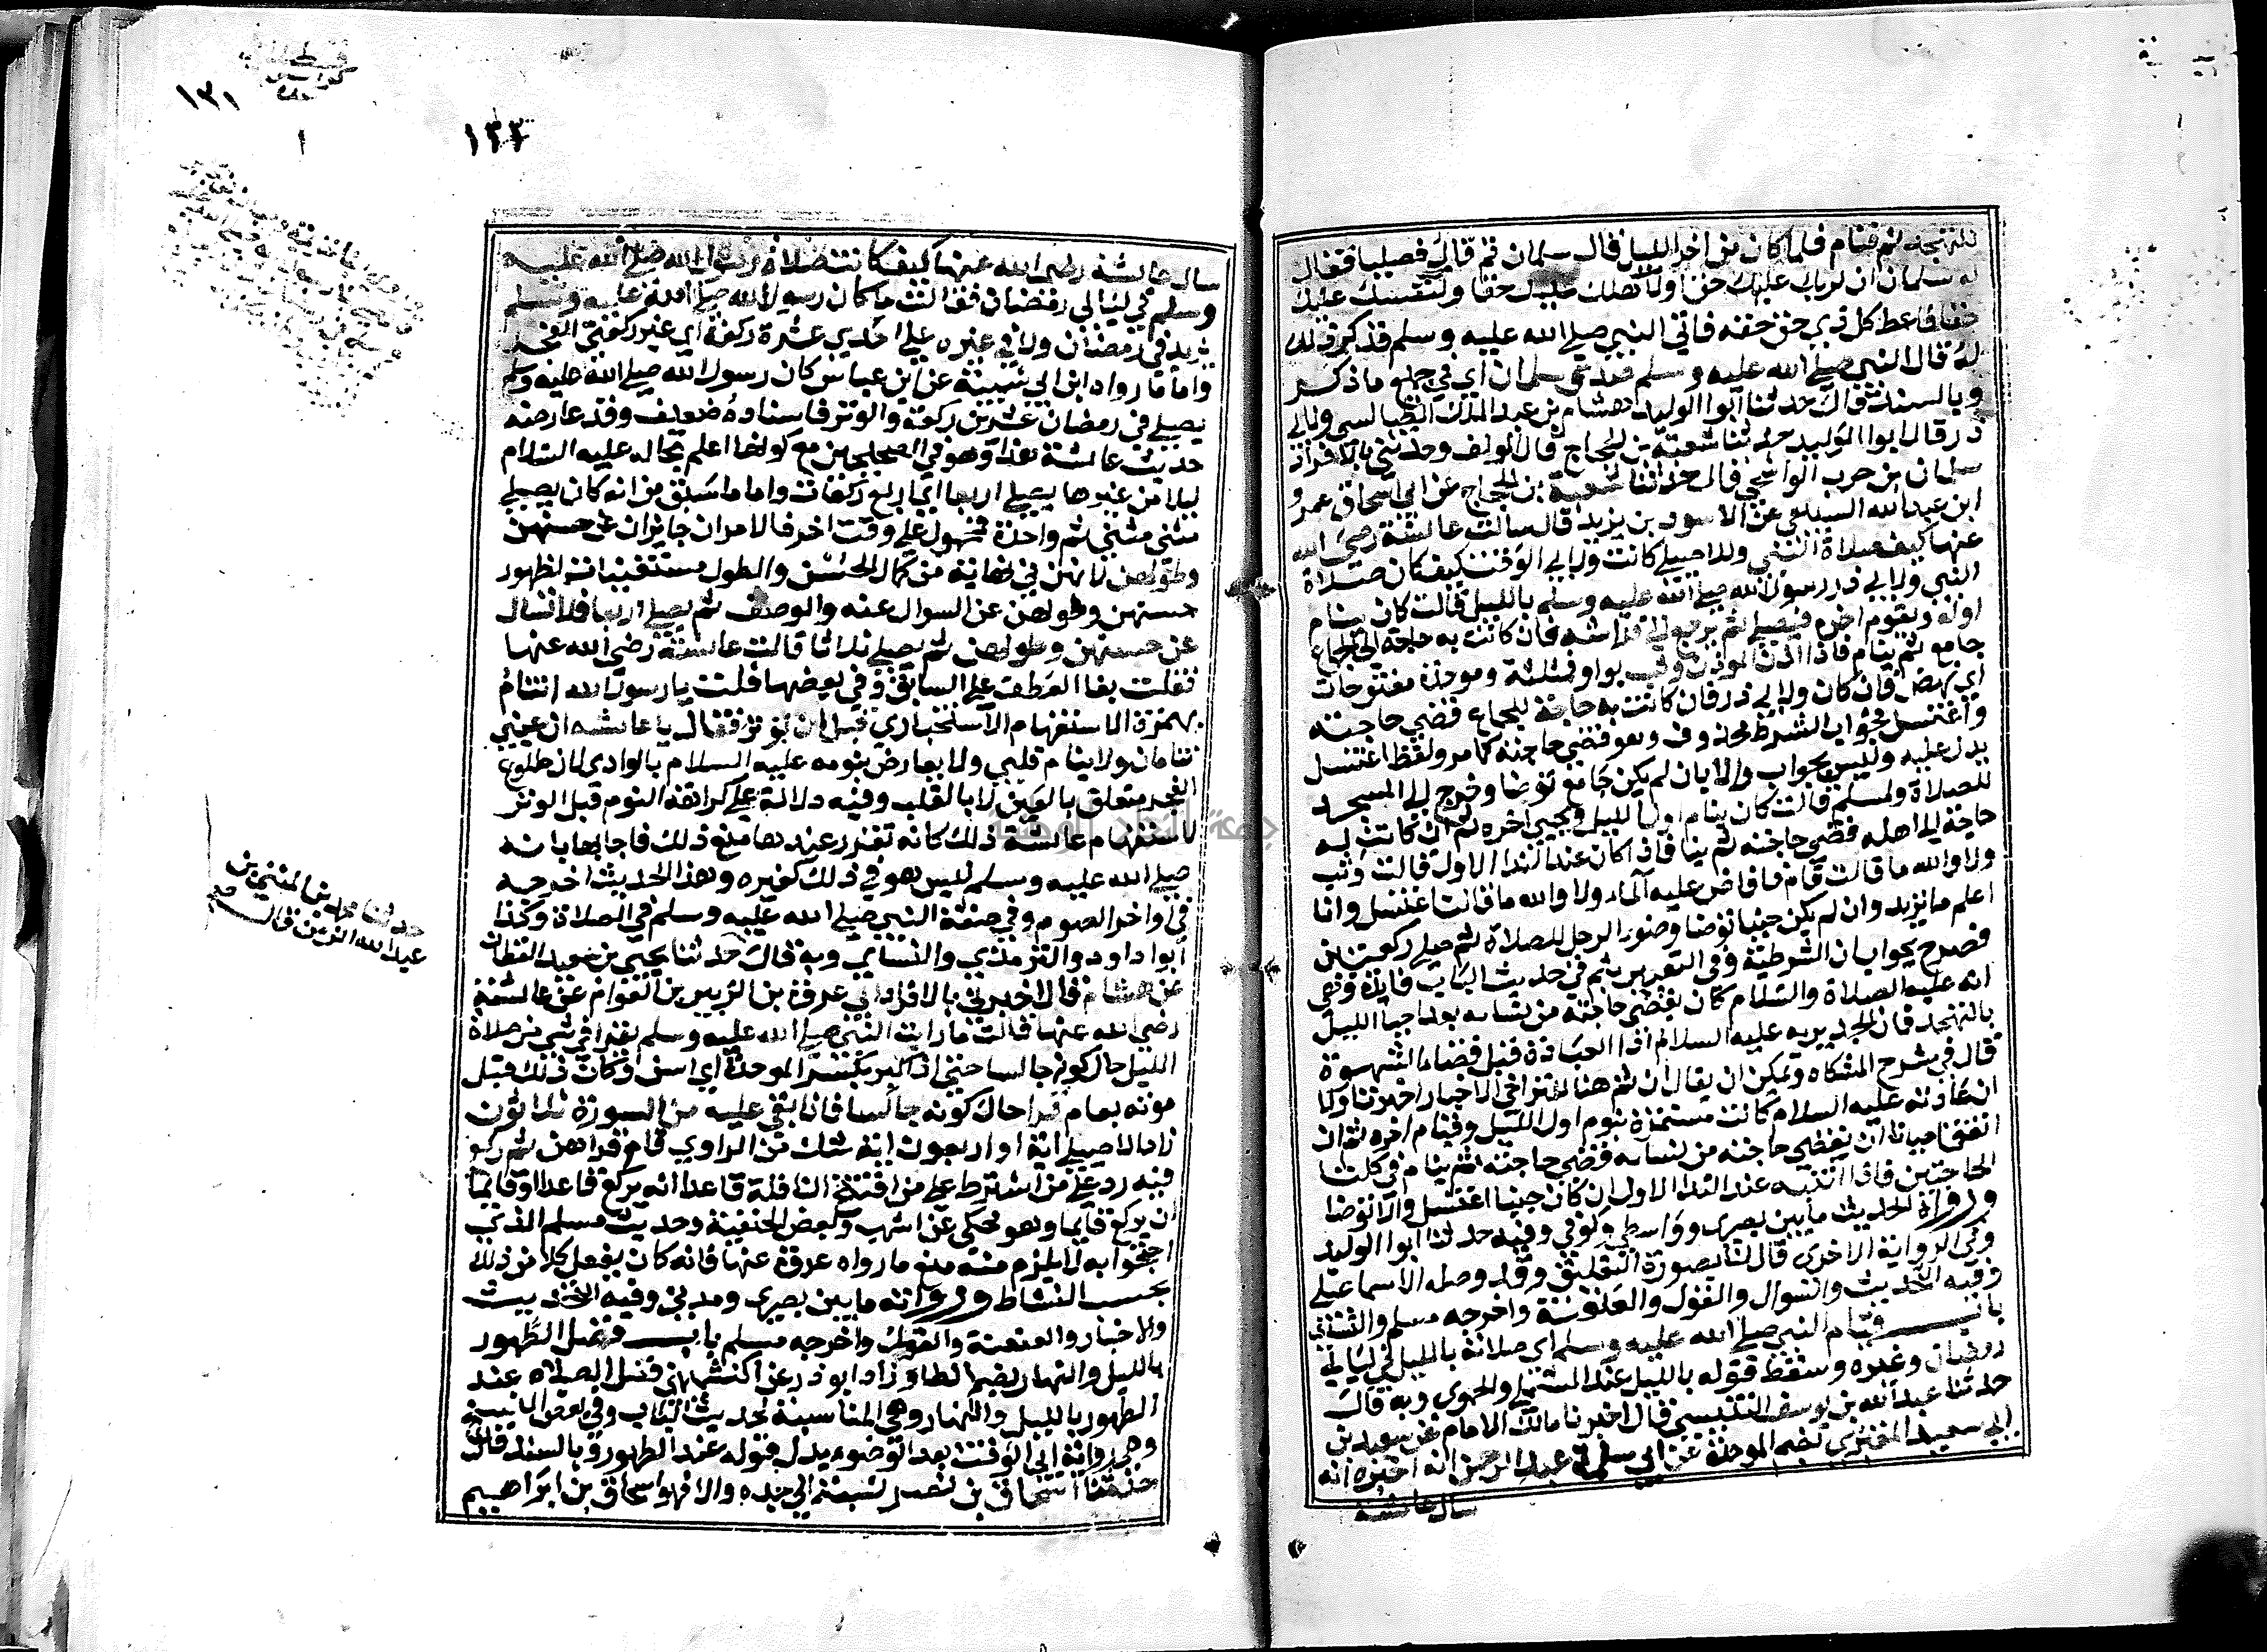 للتهجد ثم فنام فلما كان من اخر الليل قال سلمان قم قال فصليا فقال
له سلمان ان لربك عليك حقا ولاهلك عليك حقا ولنفسك عليك
حقا فاعط كل ذي حق حقه فاتى النبي صلى الله عليه وسلم فذكر ذلك
له قال النبي صلى الله عليه وسلم صدق سلمان اي في جميع ما ذكر
وبالسند قال حدثنا ابوا الوليد هشام بن عبد الملك الطيالسي ولابي
ذر قال ابوا الوليد حدثنا شعبة بن الحجاج قال المولف وحدثني بالافراد
سلمان بن حرب الواشحي قال حدثنا شعبة بن الحجاج عن ابي اسحاق عمرو
ابن عبد الله السبيعي عن الاسود بن يزيد قال سالت عائشة رضى الله
عنها كيف صلاة النبي وللاصيلي كانت ولابي الوقت كيف كان صلاة
النبي ولابي ذر رسول الله صلى الله عليه وسلم بالليل قالت كان ينام
اوله ويقوم اخره فيصلي ثم يرجع الى فراشه فان كانت به حاجة الى الجماع
جامع ثم ينام فاذا اذن الموذن وثب بواو فمثلثة وموحدة مفتوحات
اي نهض فان كان ولابي ذر فان كانت به حاجة للجماع قضى حاجته
واغتسل فجواب الشرط محذوف وهو قضى حاجته كما مر ولفظ اغتسل
يدل عليه وليس بجواب والا بان لم يكن جامع توضا وخرج الى المسجد
للصلاة ولمسلم قالت كان ينام اول الليل ويحيي اخره ثم ان كانت له
حاجة الى اهله قضى حاجته ثم ينام فاذا كان عند الندا الاول قالت وثب
ولا والله ما قالت قام فافاض عليه الماء ولا والله ما قالت اغتسل وانا
اعلم ما تريد وان لم يكن جنبا توضا وضوء الرجل للصلاة ثم صلى ركعتين
فصرح بجواب ان الشرطية وفي التعبير بثم في حديث الباب فائدة وهي
انه عليه الصلاة والسلام كان يقضي حاجته من نسايه بعد احيا الليل
بالتهجد فان الجدير به عليه السلام اذا العبادة قبل قضاء الشهوة
قال في شرح المشكاه ويمكن ان يقال ان ثم هنا لتراخي الاخبار اخبرتنا اولا
ان عادته عليه السلام كانت مستمرة بنوم اول الليل وقيام اخره ثم ان
اتفق احيانا ان يقضي حاجته من نسايه قضى حاجته ثم ينام في كلتا
الحاجتين فاذا انتبه عند الندا الاول ان كان جنبا اغتسل والا توضا
ورواة الحديث ما بين بصرى وواسطي وكوفي وفيه حدثنا ابوا الوليد
وفي الرواية الاخرى قال لنا بصورة التعليق وقد وصله الاسماعيلي
وفيه التحديث والسوال والقول والعنعنة واخرجه مسلم والنسائي
باب قيام النبي صلى الله عليه وسلم اي صلاته بالليل في ليالي
رمضان وغيره وسقط قوله بالليل عند المستملي والحموى وبه قال
حدثنا عبد الله بن يوسف التنيسي قال اخبرنا مالك الامام عن سعيد بن
ابي سعيد المقبري بضم الموحدة عن ابي سلمة عبد الرحمن انه اخبره انه
سال عائشة
١٣١
١٣٣
سال عائشة رضى الله عنها كيف كانت صلاة رسول الله صلى الله عليه
وسلم في ليالي رمضان فقالت ما كان رسول الله صلى الله عليه وسلم
يزيد في رمضان ولا في غيره على احدى عشرة ركعة اي غير ركعتي الفجر
واما ما رواه ابن ابي شيبة عن ابن عباس كان رسول الله صلى الله عليه وسلم
يصلي في رمضان عشرين ركعة والوتر فاسناده ضعيف وقد عارضه
حديث عائشة هذا وهو في الصحيحين مع كونها اعلم بحاله عليه السلام
ليلا من غيرها يصلي اربعا اي اربع ركعات واما ما سبق من انه كان يصلي
مثنى مثنى ثم واحدة فمحمول على وقت اخر فالامران جايزان عن حسنهن
وطولهن لانهن في نهاية من كمال الحسن والطول مستغنيات لظهور
حسنهن وطولهن عن السوال عنه والوصف ثم يصلي اربعا فلا تسال
عن حسنهن وطولهن ثم يصلي ثلاثا قالت عائشة رضى الله عنها
فقلت بفا العطف على السابق وفي بعضها قلت يا رسول الله اتنام
بهمزة الاستفهام الاستخباري قبل ان توتر فقال يا عائشه ان عيني
تنامان ولا ينام قلبي ولا يعارض بنومه عليه السلام بالوادي لان طلوع
الفجر متعلق بالعين لا بالقلب وفيه دلالة على كراهة النوم قبل الوتر
لاستفهام عائشة ذلك كانه تقرر عندها منع ذلك فاجابها بانه
صلى الله عليه وسلم ليس هو في ذلك كغيره وهذا الحديث اخرجه
في اواخر الصوم وفي صفة النبي صلى الله عليه وسلم في الصلاة وكذا
ابوا داود والترمذي والنسايي وبه قال حدثنا يحيي بن سعيد القطان
عن هشام قال اخبرني بالافراد ابي عروة بن الزبير بن العوام عن عائشة
رضى الله عنها قالت ما رايت النبي صلى الله عليه وسلم يقرا في شي من صلاة
الليل حال كونه جالسا حتى اذا كبر بكسر الموحدة اي اسن وكان ذلك قبل
موته بعام قرا حال كونه جالسا فاذا بقي عليه من السورة ثلاثون
زاد الاصيلي اية او اربعون اية شك من الراوي قام فقراهن ثم ركع
فيه رد على من اشترط على من افتتح النافلة قاعدا انه يركع قاعدا او قائما
ان يركع قايما وهو محكي عن اشهب وبعض الحنفية وحديث مسلم الذي
احتجوا به لا يلزم منه منع ما رواه عروة عنها فانه كان يفعل كلا من ذلك
بحسب النشاط ورواته ما بين بصرى ومدني وفيه التحديث
والاخبار والعنعنة والقول واخرجه مسلم باب فضل الطهور
بالليل والنهار بضم الطا وزاد ابو ذر عن الكشميهني فضل الصلاه عند
الطهور بالليل والنهار وهي المناسبة لحديث الباب وفي بعض النسخ
وهي رواية ابي الوقت بعد الوضوء بدل قوله عند الطهور وبالسند قال
حدثنا اسحاق بن نصر نسبه الى جده والا فهو اسحاق بن ابراهيم
حدثنا محمد بن المثنى بن
عبد الله الزمن قال صح